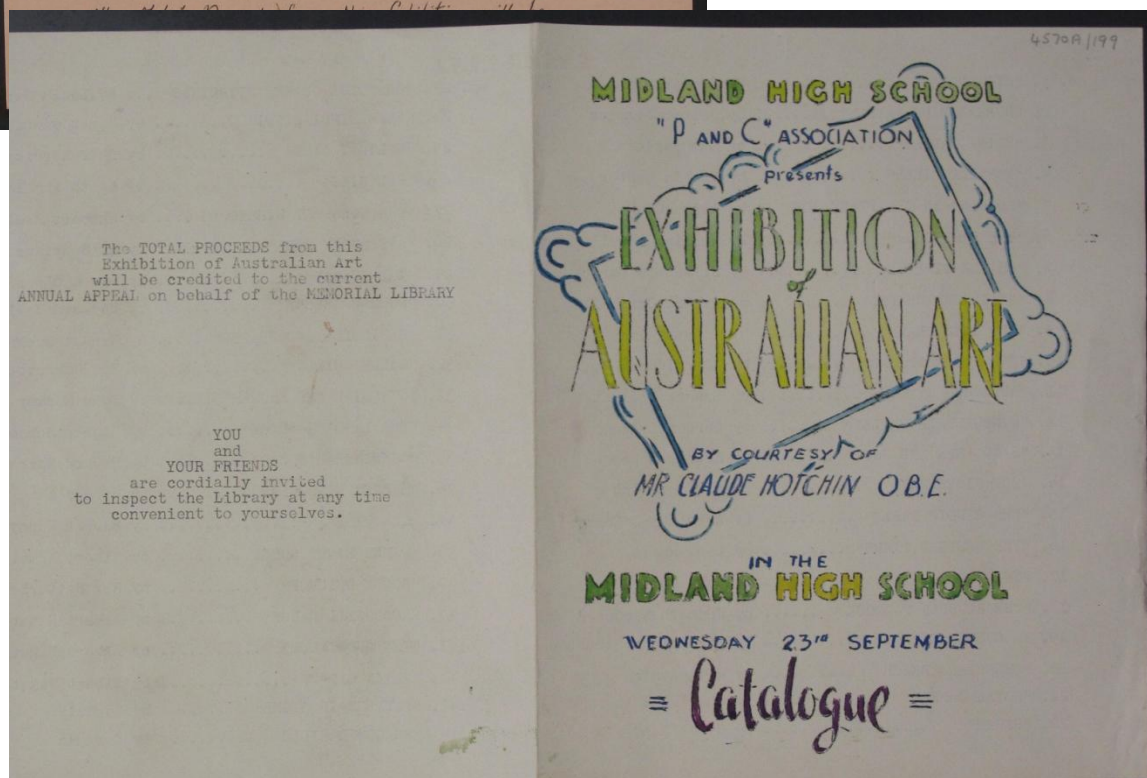 4570A/199
The TOTAL PROCEEDS from this
Exhibition of Australian Art
will be credited to the current
ANNUAL APPEAL on behalf of the MEMORIAL LIBRARY
YOU
and
YOUR FRIENDS
are cordially invited
to inspect the Library at any time
convenient to yourselves.
MIDLAND HIGH SCHOOL
"P AND C" ASSOCIATION
presents
EXHIBITION
of
AUSTRALIAN ART
BY COURTESY OF
MR CLAUDE HOTCHIN O.B.E.
IN THE
MIDLAND HIGH SCHOOL
WEDNESDAY 23rd SEPTEMBER
= Catalogue =